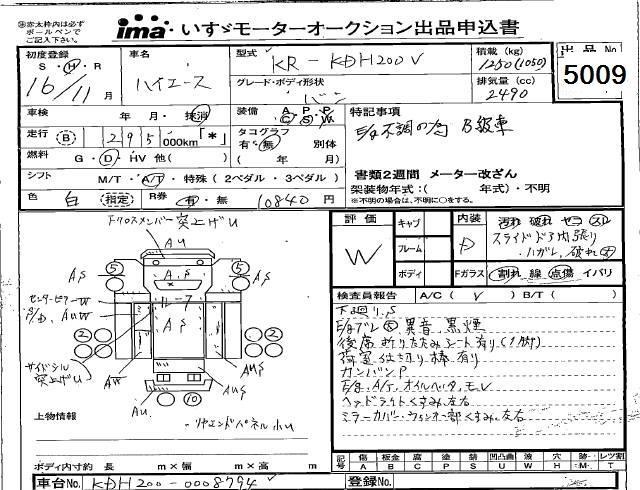 赤太枠内は必ず
ボールペンで
ご記入下さい。
ima いすゞモーターオークション出品申込書
出品No.
5009
初度登録
S・H・R
16/11月
車名
ハイエース
型式
KR-KDH200V
積載(kg)
1250(1050)
グレード・ボディ形状
バン
排気量(cc)
2490
車検
年 月・抹消
装備 A P P
C S W
走行 (B) 295 000km「*」
タコグラフ
有・無 別体
( 年 月)
特記事項
E/g不調の為 B級車
書類2週間 メーター改ざん
燃料 G・D・HV 他( )
シフト M/T・A/T・特殊(2ペダル・3ペダル)
架装物年式:( 年式)・不明
※不明の場合は、不明に○をする。
色 白 (指定) R券 有・無 10840円
評価
W
キャブ
フレーム
ボディ
内装
D
汚れ 破れ ヤコ スレ
スライドドア内張り
ハガレ、破れ大
Fガラス 割れ 線 点傷 イバリ
検査員報告 A/C( ✓ ) B/T( )
下廻りS
E/gブレ大 異音 黒煙
後席折りたたみシート有り(1脚)
荷室仕切り棒有り
カンバンP
E/g. A/T. オイル
ヘッドライトくすみ 左右
ミラーカバー・ウィンカー部くすみ 左右
下クロスメンバー突上げU
AU
5
5
AS
AS
A.S
ルーフ
AS
センターピラーW
AUW
2 2
2 2
サイドシル
突上げU
AW
AUS
AUS
AU
10
リヤエンドパネル小U
上物情報
ボディ内寸約 長 m×幅 m×高 m
記号 傷 板金 腐 塗 錆 凹 凸曲 波 穴 跡 レツ割
A B C P S U W H M T
車台No. KDH200-0008794✓
登録No.